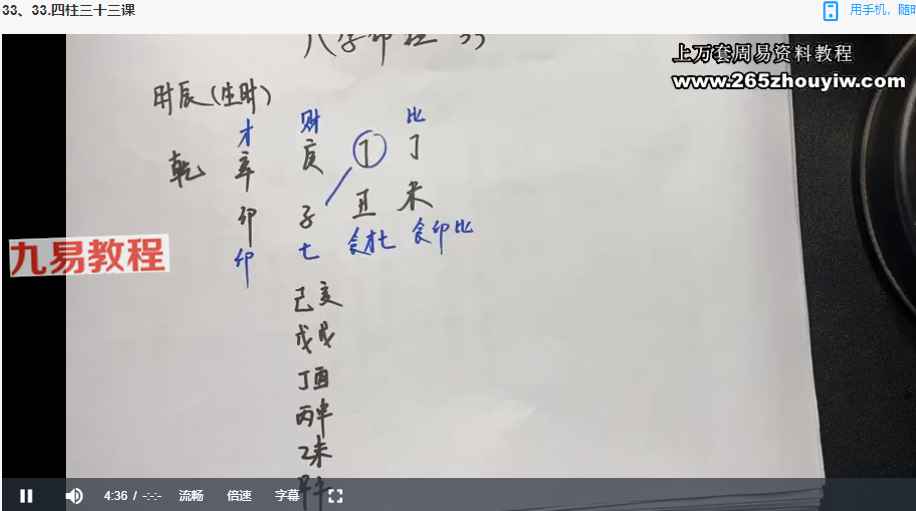 33、33.四柱三十三课
用手机，随时
上万套周易资料教程
www.265zhouyiw.com
时辰(生时)
才 财 比
乾 辛 庚 丁 丁
卯 子 丑 未
印 七 食才七 食印比
九易教程
己亥
戊戌
丁酉
丙申
乙未
4:36 / -:-:- 流畅 倍速 字幕